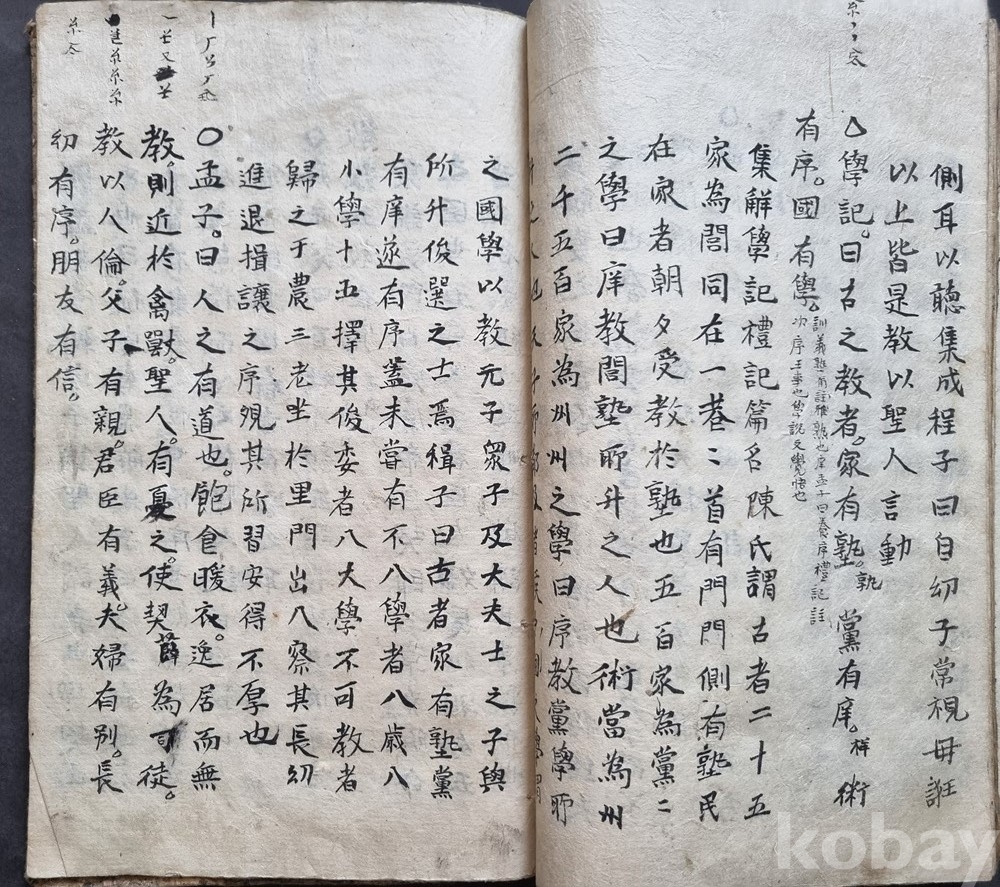 側耳以聽集成程子曰自幼子常視毋誑
以上皆是教以聖人言動
學記曰古之教者家有塾孰黨有庠祥術
有序國有學
集解學記禮記篇名陳氏謂古者二十五
家為閭同在一巷二首有門門側有塾民
在家者朝夕受教於塾也五百家為黨二
之學曰庠教閭塾所升之人也術當為州
二千五百家為州州之學曰序教黨學所
之國學以教元子衆子及大夫士之子與
所升俊選之士焉稱子曰古者家有塾黨
有庠遂有序蓋未嘗有不入學者八歲入
小學十五擇其俊委者入大學不可教者
歸之于農三老坐於里門出入察其長幼
進退揖讓之序觀其所習安得不厚也
○孟子曰人之有道也飽食暖衣逸居而無
教則近於禽獸聖人有憂之使契薛為司徒
教以人倫父子有親君臣有義夫婦有別長
幼有序朋友有信
kobay